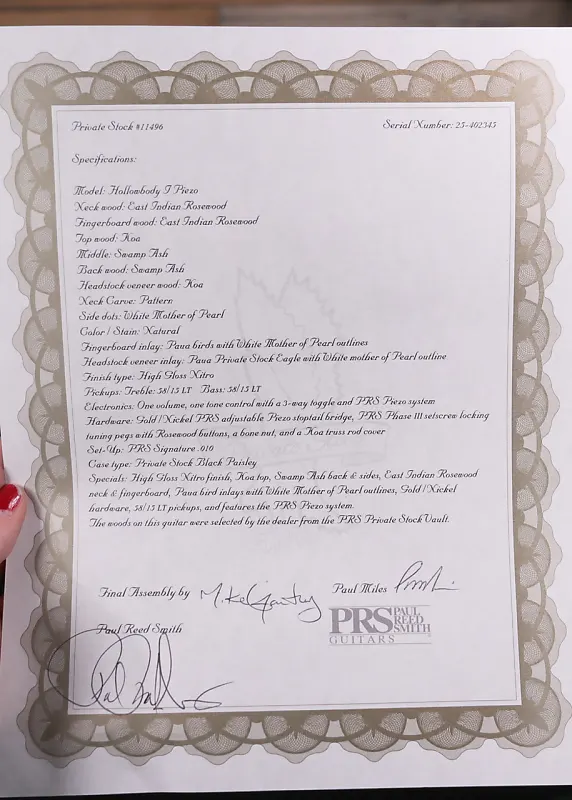 Private Stock #11496
Serial Number: 25-402345
Specifications:
Model: Hollowbody I Piezo
Neck wood: East Indian Rosewood
Fingerboard wood: East Indian Rosewood
Top wood: Koa
Middle: Swamp Ash
Back wood: Swamp Ash
Headstock veneer wood: Koa
Neck Carve: Pattern
Side dots: White Mother of Pearl
Color / Stain: Natural
Fingerboard inlay: Paua birds with White Mother of Pearl outlines
Headstock veneer inlay: Paua Private Stock Eagle with White mother of Pearl outline
Finish type: High Gloss Nitro
Pickups: Treble: 58/15 LT Bass: 58/15 LT
Electronics: One volume, one tone control with a 3-way toggle and PRS Piezo system
Hardware: Gold / Nickel PRS adjustable Piezo stoptail bridge, PRS Phase III setscrew locking
tuning pegs with Rosewood buttons, a bone nut, and a Koa truss rod cover
Set-Up: PRS Signature .010
Case type: Private Stock Black Paisley
Specials: High Gloss Nitro finish, Koa top, Swamp Ash back & sides, East Indian Rosewood
neck & fingerboard, Paua bird inlays with White Mother of Pearl outlines, Gold / Nickel
hardware, 58/15 LT pickups, and features the PRS Piezo system.
The woods on this guitar were selected by the dealer from the PRS Private Stock Vault.
Final Assembly by
Paul Miles
Paul Reed Smith
PRS PAUL REED SMITH
GUITARS